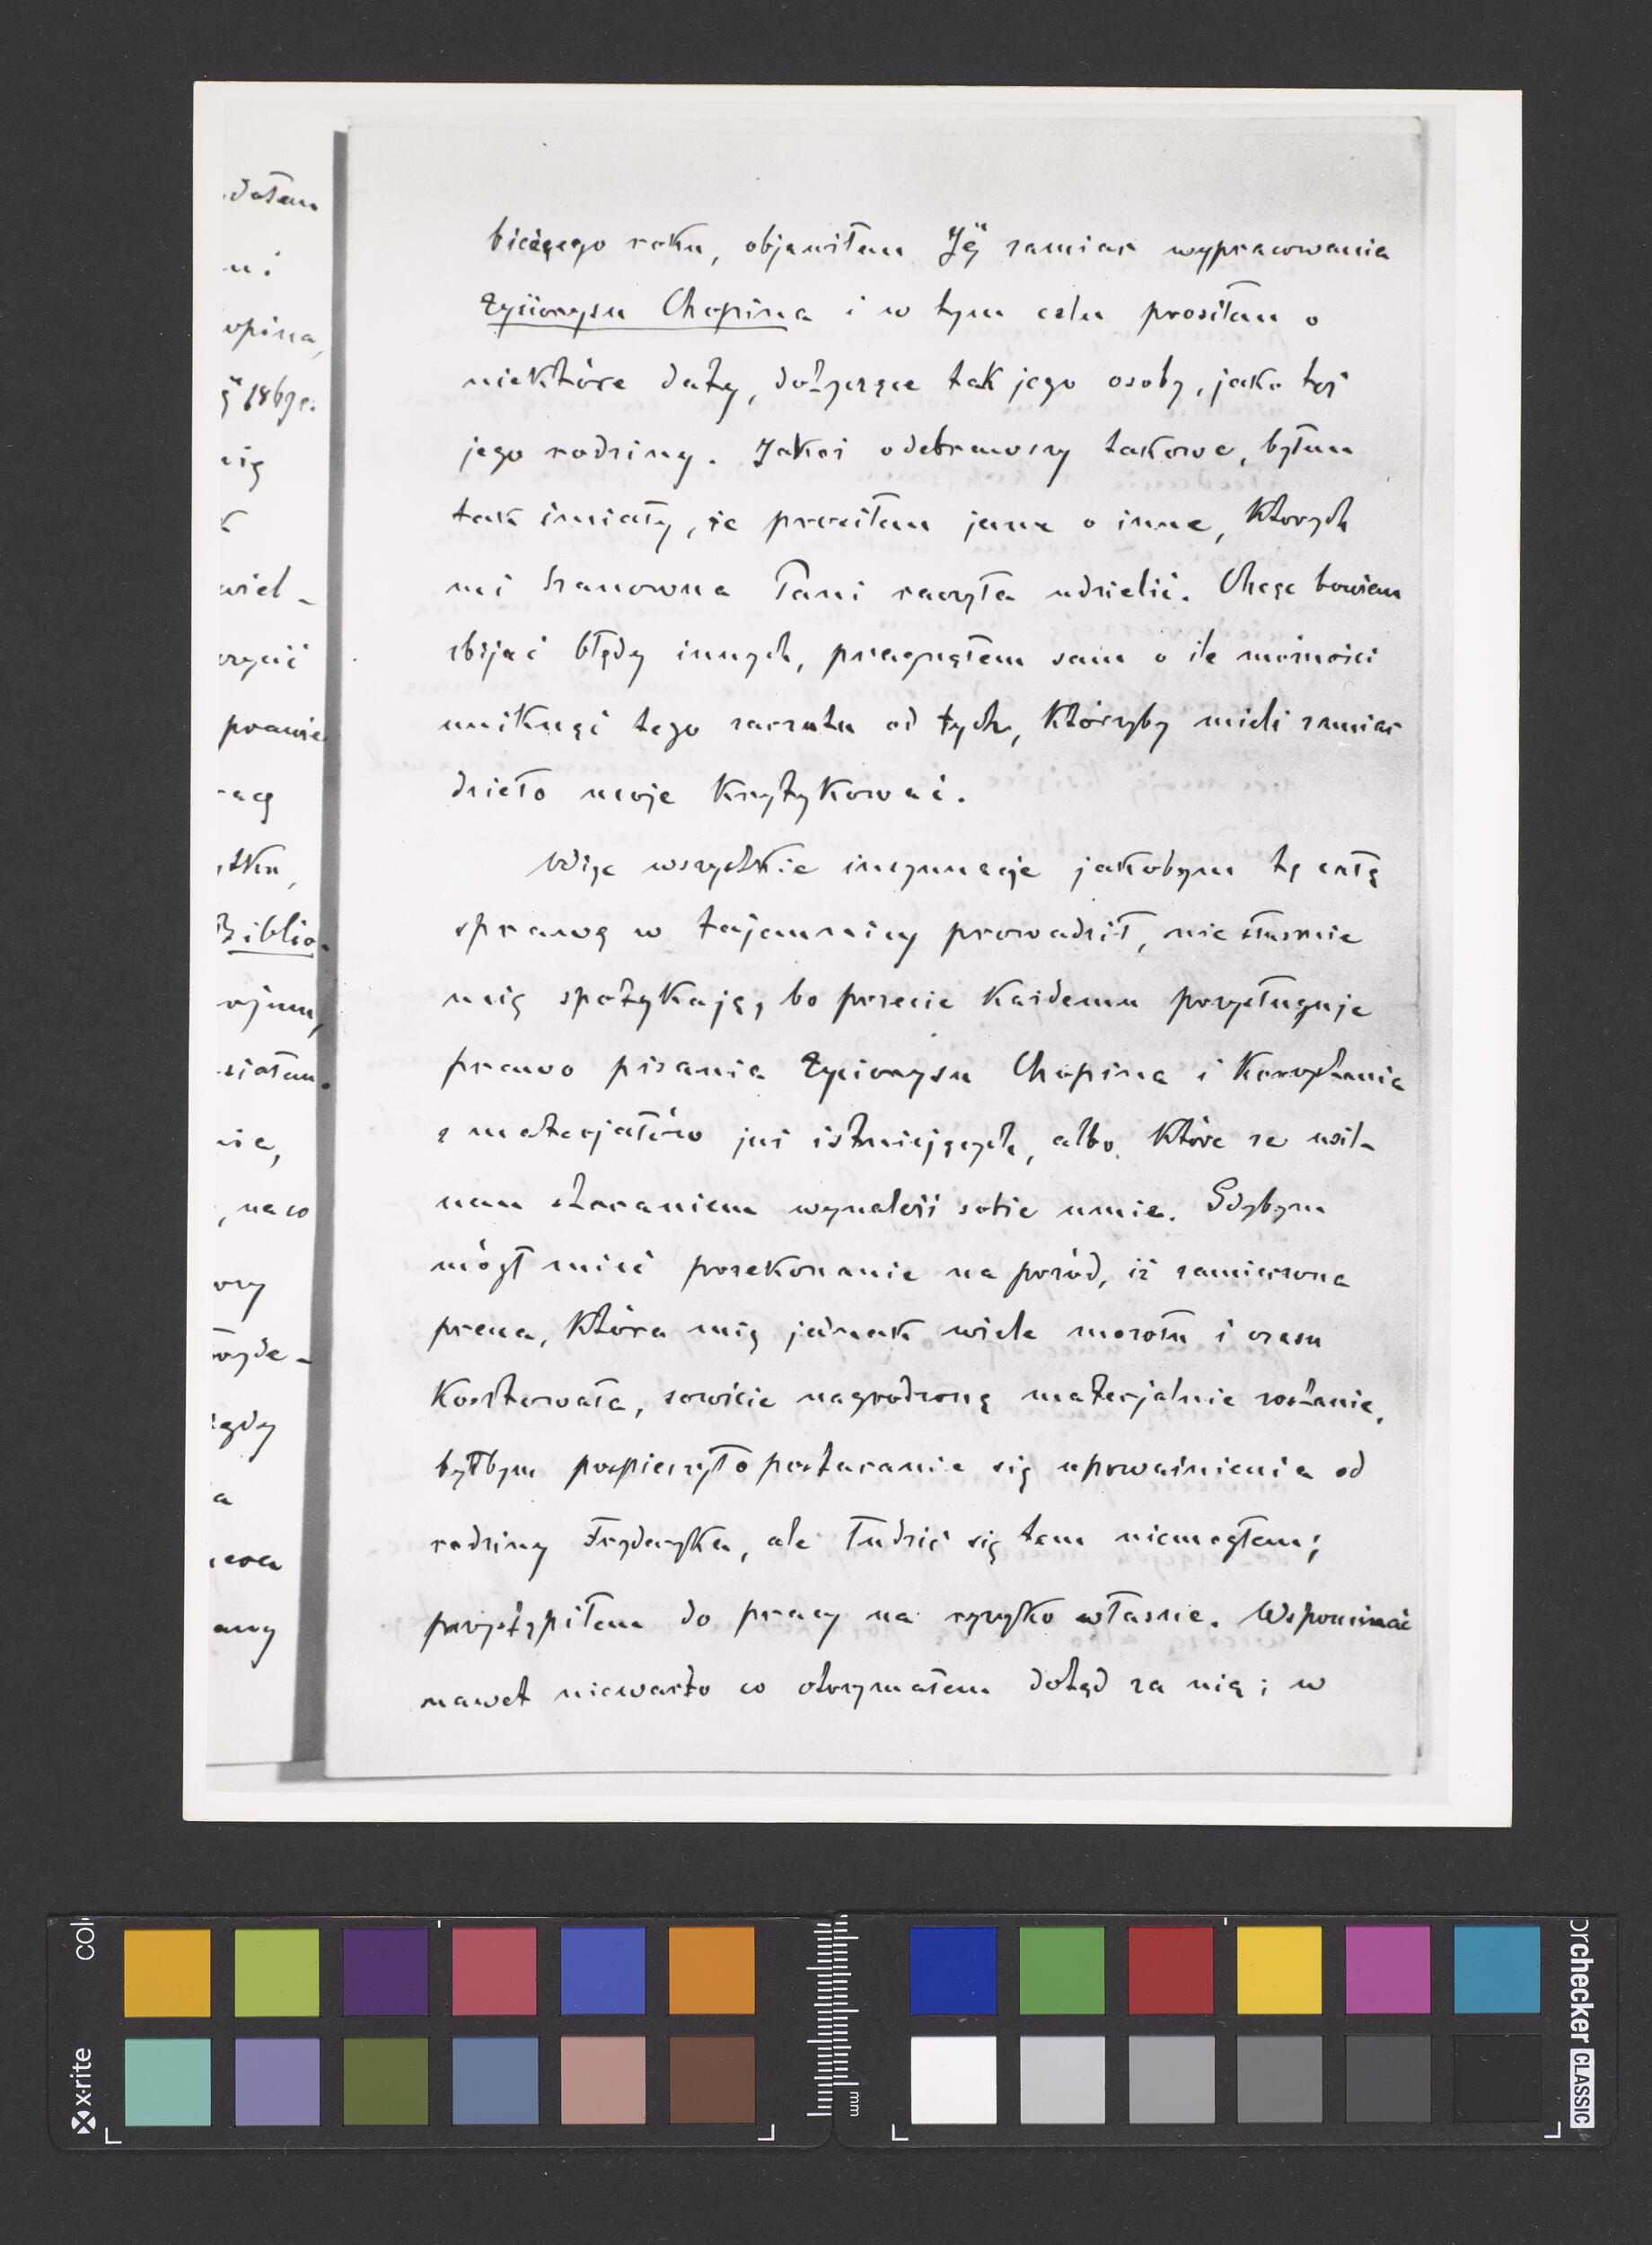 datem
ni
opina,
ę 1869r.
nię
k
wiel-
prawie
acą
tku,
Biblio-
nie,
, na co
gdy
a
bieżącego roku, objawiłem Jéj zamiar wypracowania
Życiorysu Chopina i w tym celu prosiłem o
niektóre daty, dotyczące tak jego osoby, jako téż
jego rodziny. Jakoż odebrawszy takowe, byłem
tak śmiały, że prosiłem jeszcze o inne, których
mi Szanowna Pani raczyła udzielić. Chcąc bowiem
zbijać błędy innych, pragnąłem sam o ile możności
uniknąć tego zarzutu od tych, którzyby mieli zamiar
dzieło moje krytykować.
Więc wszystkie insynuacje jakobym tę całą
sprawę w tajemnicy prowadził, niesłusznie
mię spotykają, bo przecie każdemu przysługuje
prawo pisania Życiorysu Chopina i korzystania
z materjałów już istniejących, albo które ze usil-
nem staraniem wynaleźć sobie umie. Gdybym
mógł mieć przekonanie na przód, iż zamierzona
praca, która mię jednak wiele mozołu i czasu
kosztowała, sowicie nagrodzoną materjalnie zostanie,
byłbym pospieszył o postaranie się upoważnienia od
rodziny Fryderyka, ale łudzić się tem niemogłem;
przystąpiłem do pracy na ryzyko własne. Wspominać
nawet niewarto co otrzymałem dotąd za nią; w
col
x·rite
mm
orchecker CLASSIC